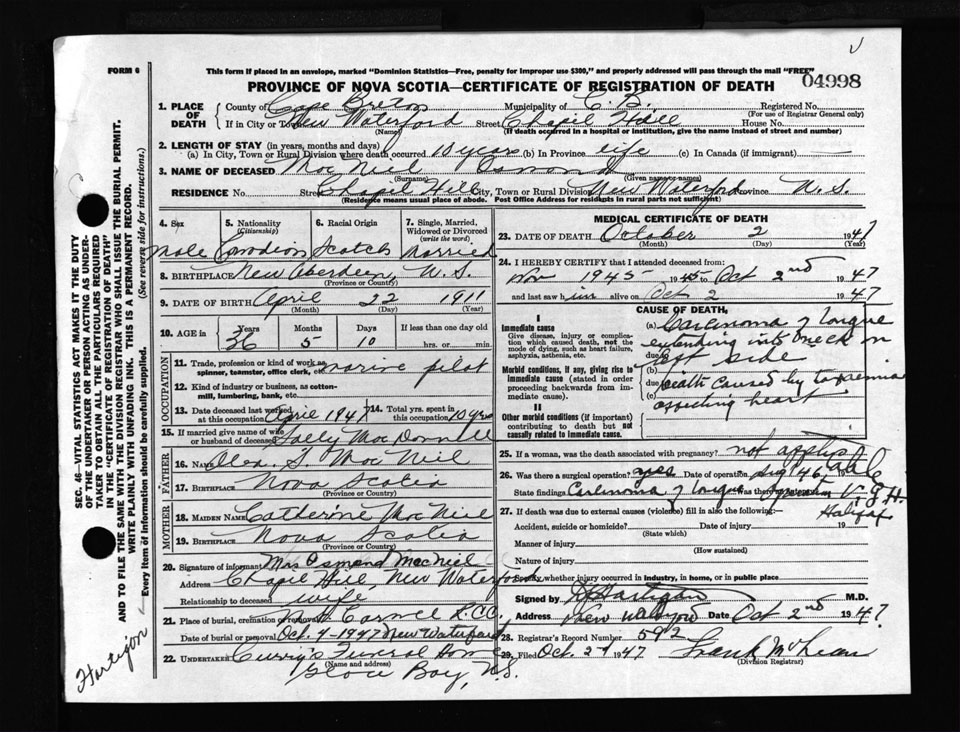 FORM 6
This form if placed in an envelope, marked "Dominion Statistics—Free, penalty for improper use $300," and properly addressed will pass through the mail "FREE"
04998
PROVINCE OF NOVA SCOTIA—CERTIFICATE OF REGISTRATION OF DEATH
1. PLACE OF DEATH
County of Cape Breton Municipality of C. B. Registered No.
(For use of Registrar General only)
If in City or Town New Waterford Street Chapil Hill House No.
(Name) (If death occurred in a hospital or institution, give the name instead of street and number)
2. LENGTH OF STAY (in years, months and days)
(a) In City, Town or Rural Division where death occurred 10 years (b) In Province life (c) In Canada (if immigrant)
3. NAME OF DECEASED MacNeil Osmond
(Surname) (Given name or names)
RESIDENCE No. Street Chapil Hill City, Town or Rural Division New Waterford Province N.S.
(Residence means usual place of abode. Post Office Address for residents in rural parts not sufficient)
4. Sex
male
5. Nationality (Citizenship)
Canadian
6. Racial Origin
Scotch
7. Single, Married, Widowed or Divorced (write the word)
Married
8. BIRTHPLACE New Aberdeen, N.S.
(Province or Country)
9. DATE OF BIRTH April 22 1911
(Month) (Day) (Year)
10. AGE in Years Months Days If less than one day old
36 5 10 hrs. or min.
OCCUPATION
11. Trade, profession or kind of work as spinner, teamster, office clerk, etc. marine pilot
12. Kind of industry or business, as cotton-mill, lumbering, bank, etc.
13. Date deceased last worked at this occupation April 1947 14. Total yrs. spent in this occupation 10 yrs
15. If married give name of wife or husband of deceased Sally MacDonnell
FATHER
16. NAME Alex. J. MacNeil
17. BIRTHPLACE Nova Scotia
(Province or Country)
MOTHER
18. MAIDEN NAME Catherine MacNeil
19. BIRTHPLACE Nova Scotia
(Province or Country)
20. Signature of informant Mrs Osmond MacNeil
Address Chapil Hill, New Waterford
Relationship to deceased wife
21. Place of burial, cremation or removal Mt Carmel R.C.C.
Date of burial or removal Oct. 4-1947 New Waterford
22. UNDERTAKER Curry's Funeral Home
(Name and address)
Glace Bay, N.S.
MEDICAL CERTIFICATE OF DEATH
23. DATE OF DEATH October 2 1947
(Month) (Day) (Year)
24. I HEREBY CERTIFY that I attended deceased from:
Nov 1945 to Oct 2nd 1947
and last saw him alive on Oct 2 1947
CAUSE OF DEATH
I
Immediate cause
Give disease, injury or complication which caused death, not the mode of dying, such as heart failure, asphyxia, asthenia, etc.
Morbid conditions, if any, giving rise to immediate cause (stated in order proceeding backwards from immediate cause).
II
Other morbid conditions (if important) contributing to death but not causally related to immediate cause.
(a) Carcinoma of tongue
extending into neck on
due to left side
(b)
due to Death caused by toxemia
affecting heart
25. If a woman, was the death associated with pregnancy? not applicable
26. Was there a surgical operation? yes Date of operation Aug 1946
State findings Carcinoma of tongue Was there an autopsy? V. G. H. Halifax
27. If death was due to external causes (violence) fill in also the following:—
Accident, suicide or homicide? Date of injury 19
(State which)
Manner of injury
(How sustained)
Nature of injury
Specify whether injury occurred in industry, in home, or in public place
Signed by Hartigan M.D.
Address New Waterford Date Oct 2nd 1947
28. Registrar's Record Number 592
29. Filed Oct. 2 1947 Frank McLean
(Division Registrar)
SEC. 46—VITAL STATISTICS ACT MAKES IT THE DUTY OF THE UNDERTAKER OR PERSON ACTING AS UNDERTAKER TO OBTAIN ALL THE PARTICULARS REQUIRED IN THE "CERTIFICATE OF REGISTRATION OF DEATH" AND TO FILE THE SAME WITH THE DIVISION REGISTRAR WHO SHALL ISSUE THE BURIAL PERMIT.
WRITE PLAINLY WITH UNFADING INK. THIS IS A PERMANENT RECORD.
Every item of information should be carefully supplied. (See reverse side for instructions.)
Hartigan